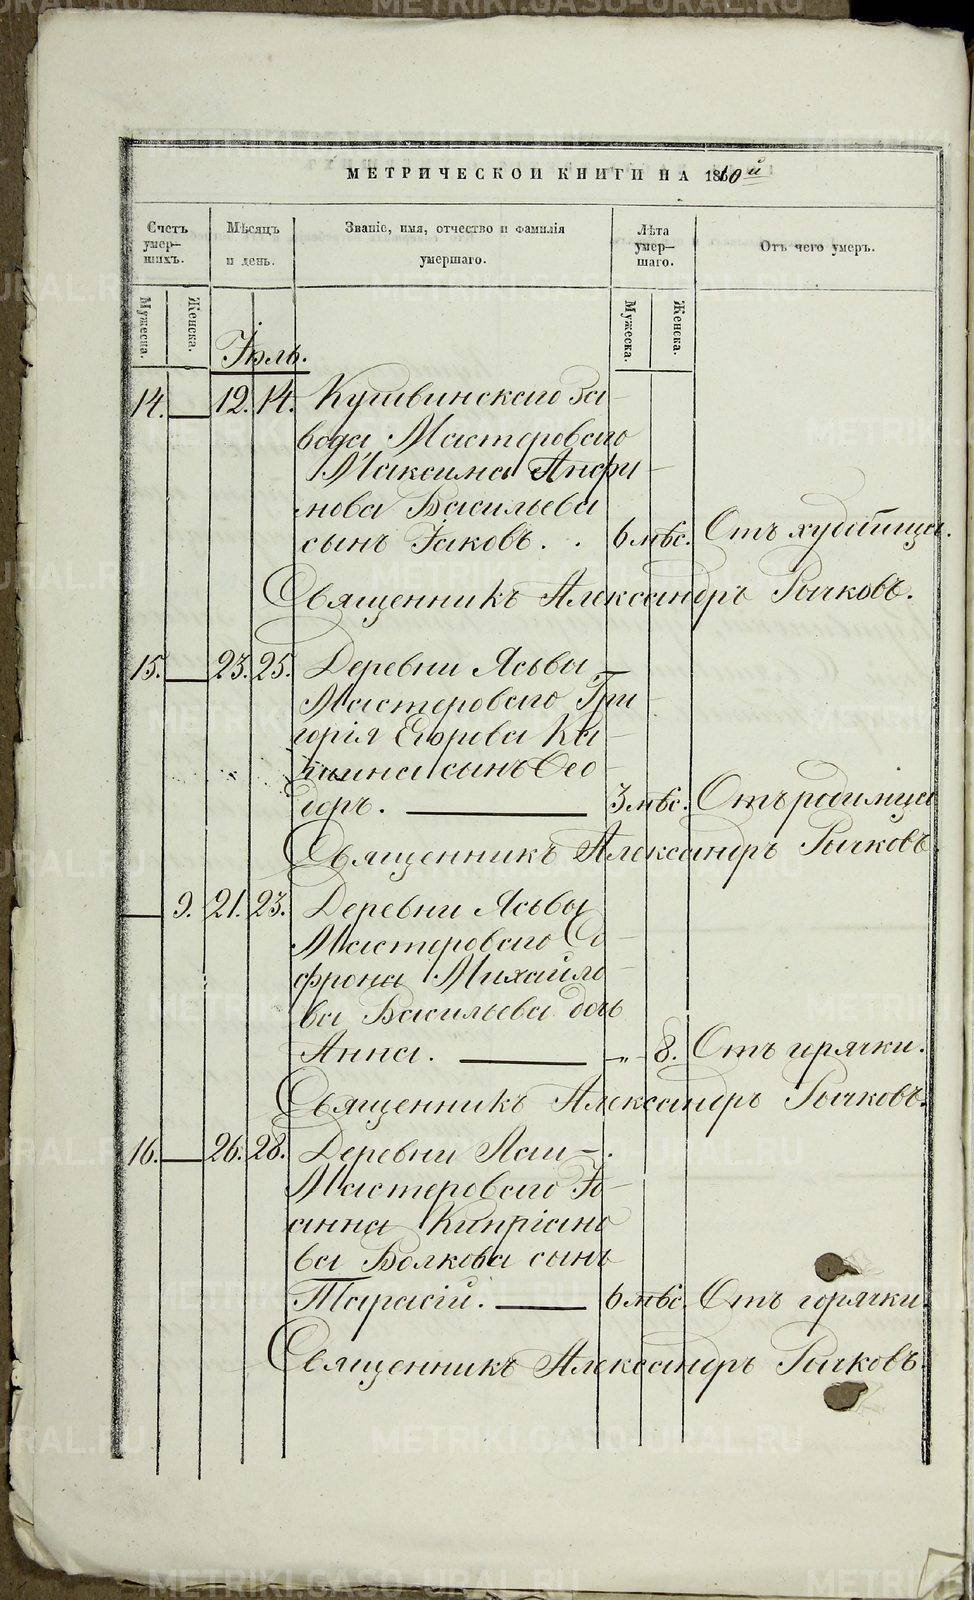 МЕТРИЧЕСКОЙ КНИГИ НА 1860й
Счетъ умер-шихъ.
Мѣсяцъ и день.
Званіе, имя, отчество и фамилія умершаго.
Лѣта умер-шаго.
Отъ чего умеръ.
Мужеска.
Женска.
Мужеска.
Женска.
Іюль.
14. — 12. 14. Кушвинскаго За-
вода Мастероваго
Максима Анфи-
нова Васильева
сынъ Іаковъ. 6 мѣс. Отъ худобища.
Священникъ Александръ Рычковъ.
15. — 23. 25. Деревни Ясьвы
Мастероваго Гри-
горія Егорова Ка-
сынъ Ѳео-
доръ. — 3 мѣс. Отъ родимца
Священникъ Александръ Рычковъ.
— 9. 21. 23. Деревни Ясьвы
Мастероваго Со-
фрона Михайло-
ва Васильева дочь
Анна. — „ 8. Отъ горячки.
Священникъ Александръ Рычковъ.
16. — 26. 28. Деревни
Мастероваго Іо-
анна Кипріано-
ва Волкова сынъ
Тарасій. — 6 мѣс. Отъ горячки.
Священникъ Александръ Рычковъ.
METRIKI.GASO-URAL.RU